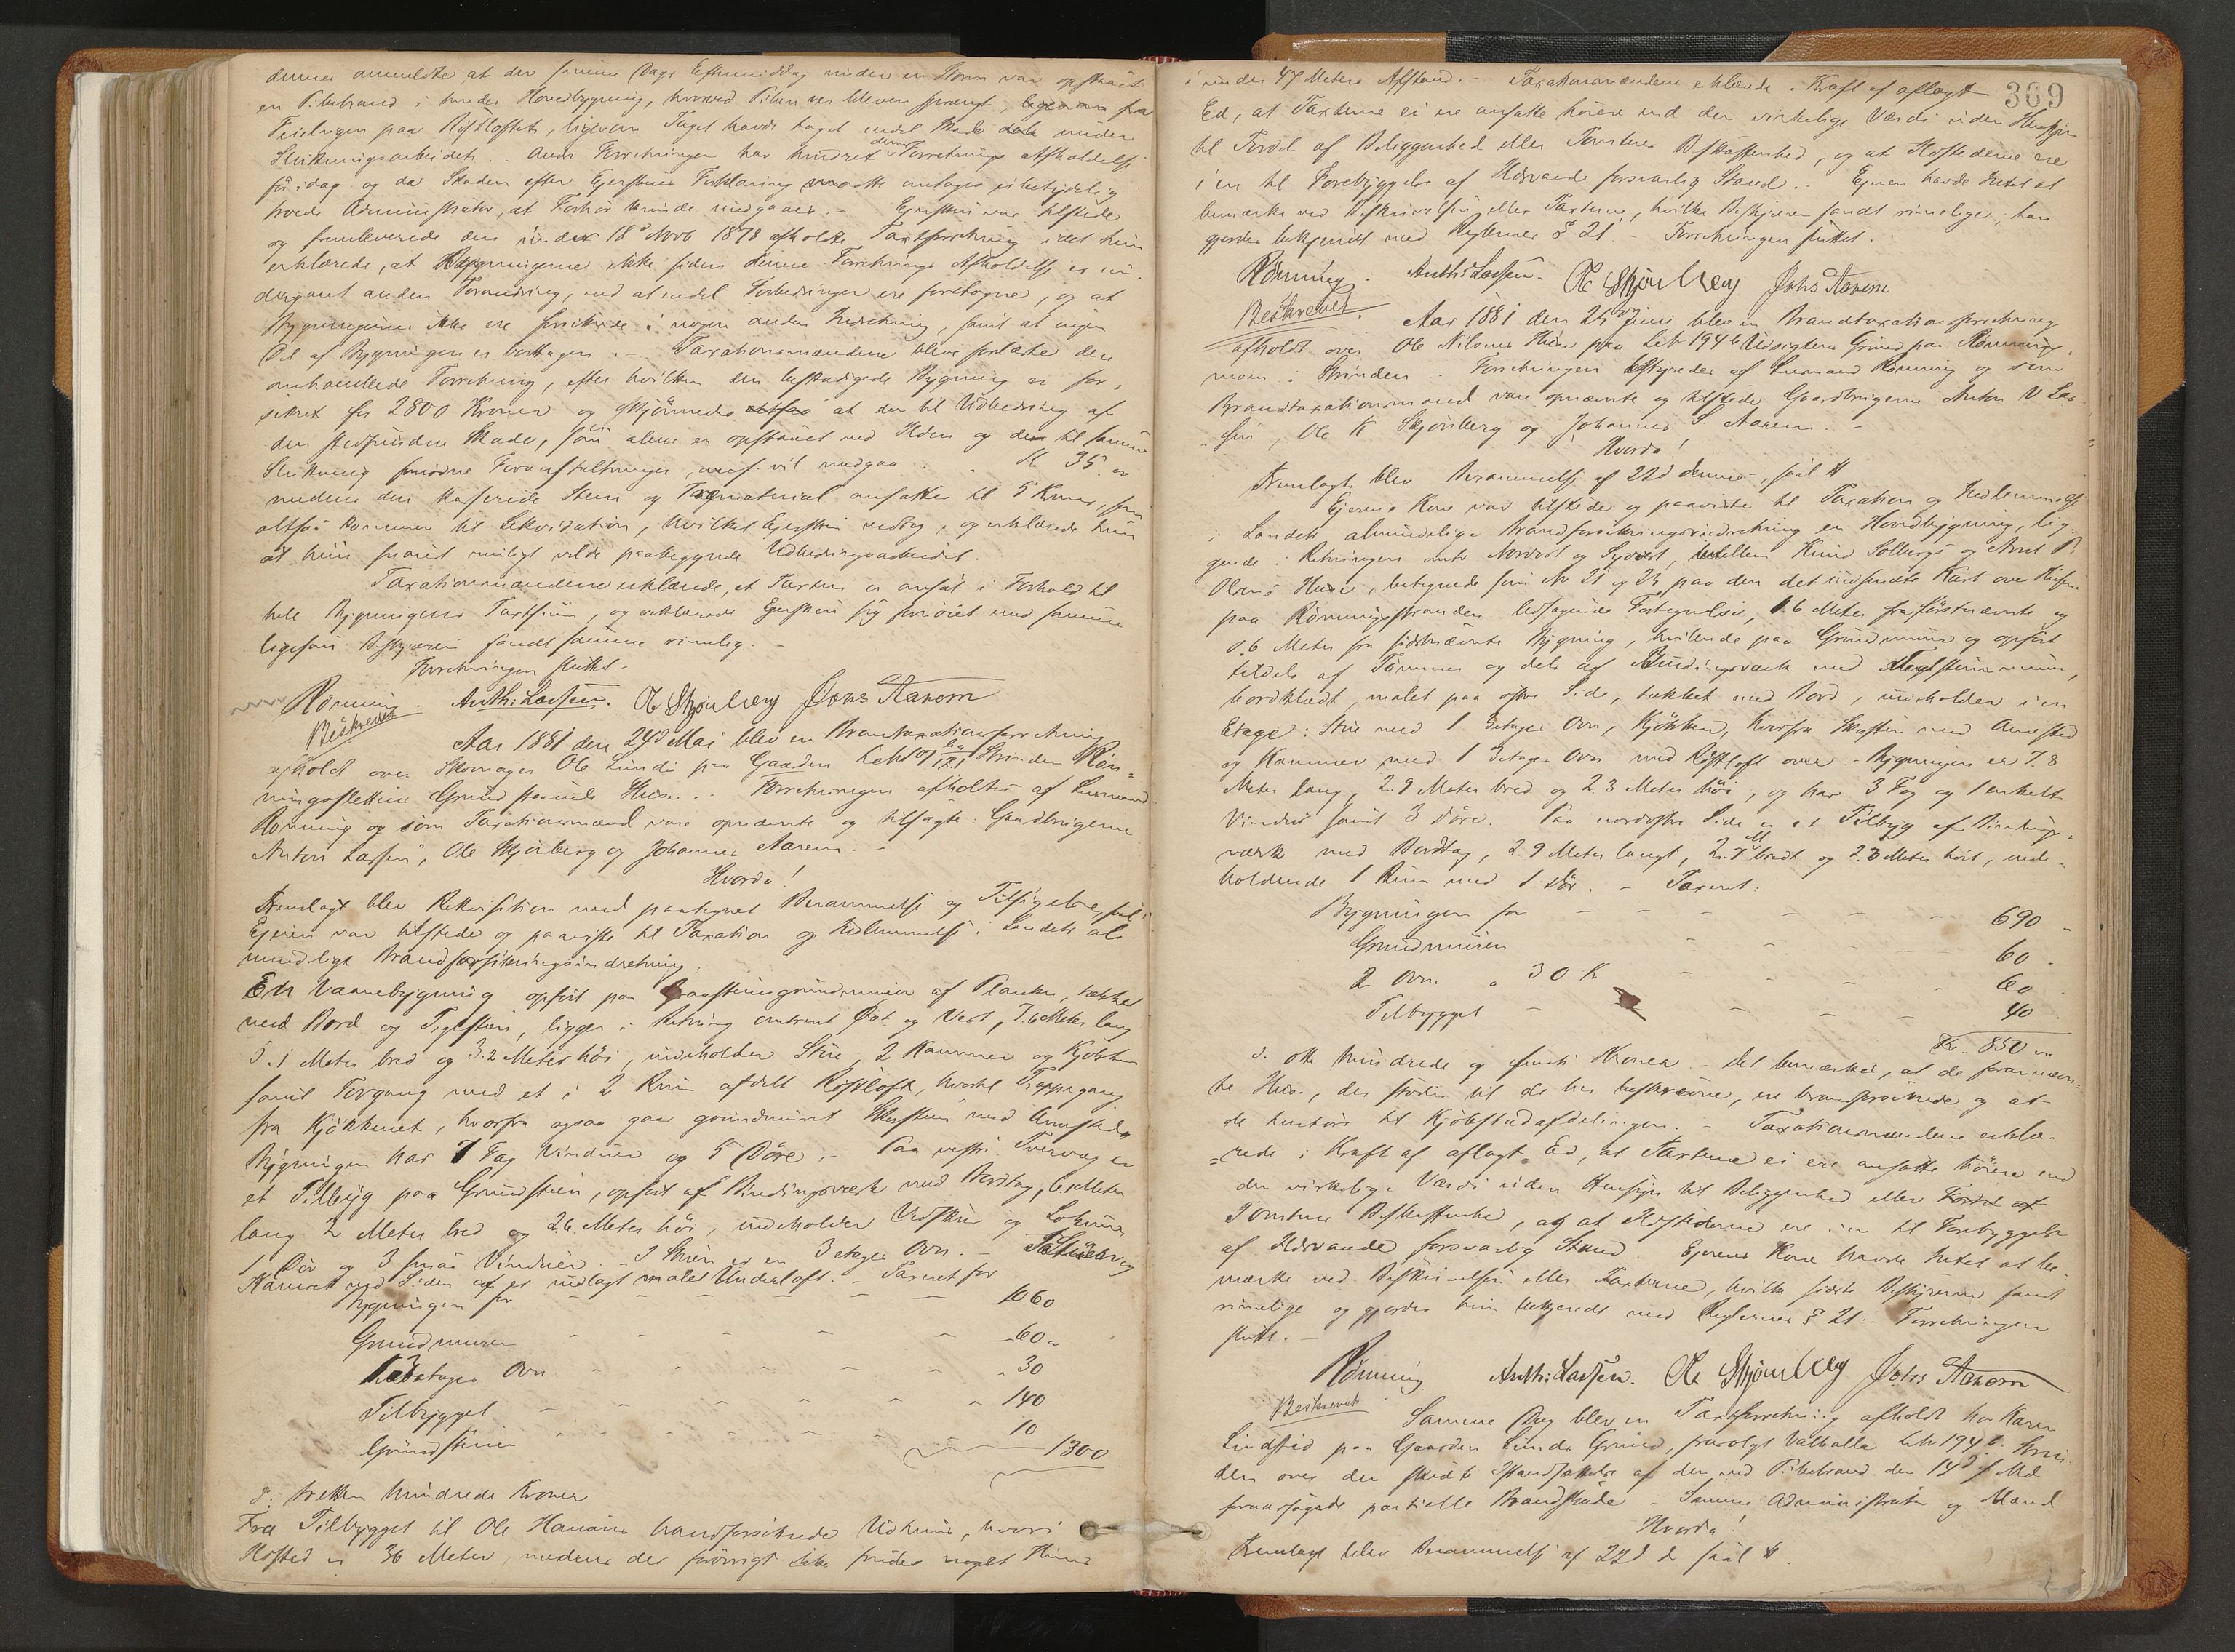 denne anmeldte at der samme Dags Eftermiddag under en Storm var opstaaet
en Pibebrand i hendes Hovedbygning, hvorved Piben var bleven sprængt, fra
Feieringen paa Röstloftet, ligesom Taget havde taget endel Skade under
Slukningsarbeidet. Andre Forretninger har hindret denne Forretnings Afholdelse
för idag og da Skaden efter Eierskens Forklaring maatte antages ubetydelig
troede Administrator, at Forhör kunde undgaaes. - Eiersken var tilstede
og fremleverede den under 18de Novb 1878 afholdte Taxtforretning idet hun
erklærede, at Bygningerne ikke siden denne Forretnings Afholdelse er un-
dergaaet anden Forandring, end at endel Forbedringer ere foretagne, og at
Bygningerne ikke ere forsikrede i nogen anden Indretning, samt at ingen
Del af Bygningen er borttagen. - Taxationsmændene bleve forelæste den
omhandlede Forretning, efter hvilken den beskadigede Bygning er for-
sikret for 2800 Kroner og skjönnede at der til Udbedring af
den stedfundne Skade, som alene er opstaaet ved Ilden og de til samme
Slukning gjorde Foranstaltninger, vil medgaa - - K 35.00
medens den kasserede Sten og Træmaterial ansattes til 5 Kroner, som
altsaa kommer til Likvidation, hvilket Eiersken vedtog, og erklærede hun
at hun snarest muligt vilde paabegynde Udbedringsarbeidet.
Taxationsmændene erklærede, at Taxten er ansat i Forhold til
hele Bygningens Taxtsum, og erklærede Eiersken sig fornöiet med samme
ligesom Bestyreren fandt samme rimelig. -
Forretningen sluttet. -
Rönning. Anth: Lassen. Ole Skjönberg Johs Aarem
Beskrevet
Aar 1881 den 24d Mai blev en Brandtaxationsforretning
afholdt over Skomager Ole Lunds paa Gaarden Strinden Rön-
ningsslettens Grund staaende Huse. - Forretningen afholtes af Lensmand
Rönning og som Taxationsmænd vare opnævnte og tilsagte: Gaardbrugerne
Anton Lassen, Ole Skjönberg og Johannes Aarem. -
Hvorda!
Fremlagt blev Rekvisition med paategnet Berammelse og Tilsigelse,
Eieren var tilstede og paaviste til Taxation og Indlemmelse i Landets al-
mindelige Brandforsikringsindretning
En Vaanebygning opfört paa Graastensgrundmur af Planker, tækket
med Bord og Teglsten, ligger i Retning omtrent Öst og Vest, 7.6 Meter lang
5.1 Meter bred og 3.2 Meter höi, indeholder Stue, 2 Kammer og Kjökken
samt Forgang med et i 2 Rum afdelt Röstloft, hvortil Trappegang
fra Kjökkenet, hvorfra ogsaa gaar grundmuret Skorsten med Arnested,
Bygningen har 7 Fag Vinduer og 5 Döre. - Paa vestre Tvervæg er
et Tilbyg paa Grundsten, opfört af Bindingsværk med Bordtag, 6. Meter
lang 2 Meter bred og 2.6 Meter höi, indeholder Vedskur og
1 Dör og 3 smaa Vinduer. - I Stuen er en 3 etages Ovn. - Stuen og
Kammeret ved Siden af er indlagt malet Underloft. - Taxeret for
Bygningen for - - - - 1060
Grundmuren - - - - 60 "
3 etages Ovn - - - - 30
Tilbygget - - - - 140
Grundstenen - - - - 10
1300
s. tretten hundrede Kroner
Fra Tilbygget til Ole Hansens brandforsikrede Udhuus, hvori
Ildsted er 36 Meter, medens der forövrigt ikke findes noget Huus
369
i under 47 Meters Afstand. - Taxationsmændene erklærede i Kraft af aflagt
Ed, at Taxterne ei ere ansatte höiere end den virkelige Værdi uden Hensyn
til Fordel af Beliggenhed eller Tomtens Beskaffenhed, og at Ildstederne ere
i en til Forebyggelse af Ildsvaade forsvarlig Stand. - Eieren havde Intet at
bemærke ved Beskrivelsen eller Taxterne, hvilke Bestyreren fandt rimelige, han
gjordes bekjendt med Reglernes § 21 - Forretningen sluttet.
Rönning. Anth: Lassen. Ole Skjönberg Johs Aarem
Beskrevet.
Aar 1881 den 25de Juni blev en Brandtaxationsforretning
afholdt over Ole Nilsens Huse paa Leb 194 b Udsigtens Grund paa Rönning-
moen i Strinden. - Forretningen bestyredes af Lensmand Rönning og som
Brandtaxationsmænd vare opnævnte og tilstede Gaardbrugerne Anton V La-
ssen, Ole K Skjönberg og Johannes S. Aarem. -
Hvorda!
Fremlagt blev Berammelse af 22d dennes,
Eierens Kone var tilstede og paaviste til Taxation og Indlemmelse
i Landets almindelige Brandforsikringsindretning en Hovedbygning, lig-
gende i Retningen omtr Nordost og Sydvest, mellem Knud Solbergs og Arnt P.
Olsens Huse, betegnede som No 21 og 23 paa den det indsendte Kart over Husene
paa Rönningstranden ledsagende Fortegnelse, 1.6 Meter fra förstnævnte og
0.6 Meter fra sidstnævnte Bygning, hvilende paa Grundmuur og opfört
tildels af Tömmer og dels af Bindingsværk med Teglstensmuur,
bordklædt, malet paa östre Side, tækket med Bord, indeholder i en
Etage: Stue med 1 3 etages Ovn, Kjökken, hvorfra Skorsten med Arnested
og Kammer med 1 3 etages Ovn med Röstloft over. - Bygningen er 7.8
Meter lang, 2.9 Meter bred og 2.3 Meter höi, og har 3 Fag og 1 enkelt
Vindue samt 3 Döre. Paa nordostre Side er et Tilbyg af Bindings-
værk med Bordtag, 2.9 Meter langt, 2.7 M bredt og 2.3 Meter höit, inde-
holdende 1 Rum med 1 Dör. - Taxeret:
Bygningen for - - - - 690 -
Grundmuren - - - 60 -
2 Ovn. " 30 K - - - 60 -
Tilbygget - - - - 40 -
Kr. 850 "
s. otte hundrede og femti Kroner. - Det bemærkes, at de forannævn-
te Huse, der stöder til de her beskrevne, ere brandforsikrede og at
de henhöre til Kjöbstadafdelingen. - Taxationsmændene erklæ-
rede i Kraft af aflagt Ed, at Taxterne ei ere ansatte höiere end
den virkelige Værdi uden Hensyn til Beliggenhed eller Fordel af
Tomtens Beskaffenhed, og at Ildstederne ere i en til Forebyggelse
af Ildsvaade forsvarlig Stand. Eierens Kone havde Intet at be-
mærke ved Beskrivelsen eller Taxterne, hvilke sidste Bestyreren fandt
rimelige og gjordes hun bekjendt med Reglernes § 21. - Forretningen
sluttet. -
Rönning Anth: Lassen. Ole Skjönberg Johs Aarem
Beskrevet
Samme Dag blev en Taxtforretning afholdt hos Karen
Lindstad paa Gaarden Lunds Grund, Valhalla Leb 194 b. Strin-
den over den skedte Istandsættelse af den ved Pibebrand den 14d f Md
foraarsagede partielle Brandskade. - Samme Administrator og Mænd
Hvorda!
Fremlagt blev Berammelse af 22d ds